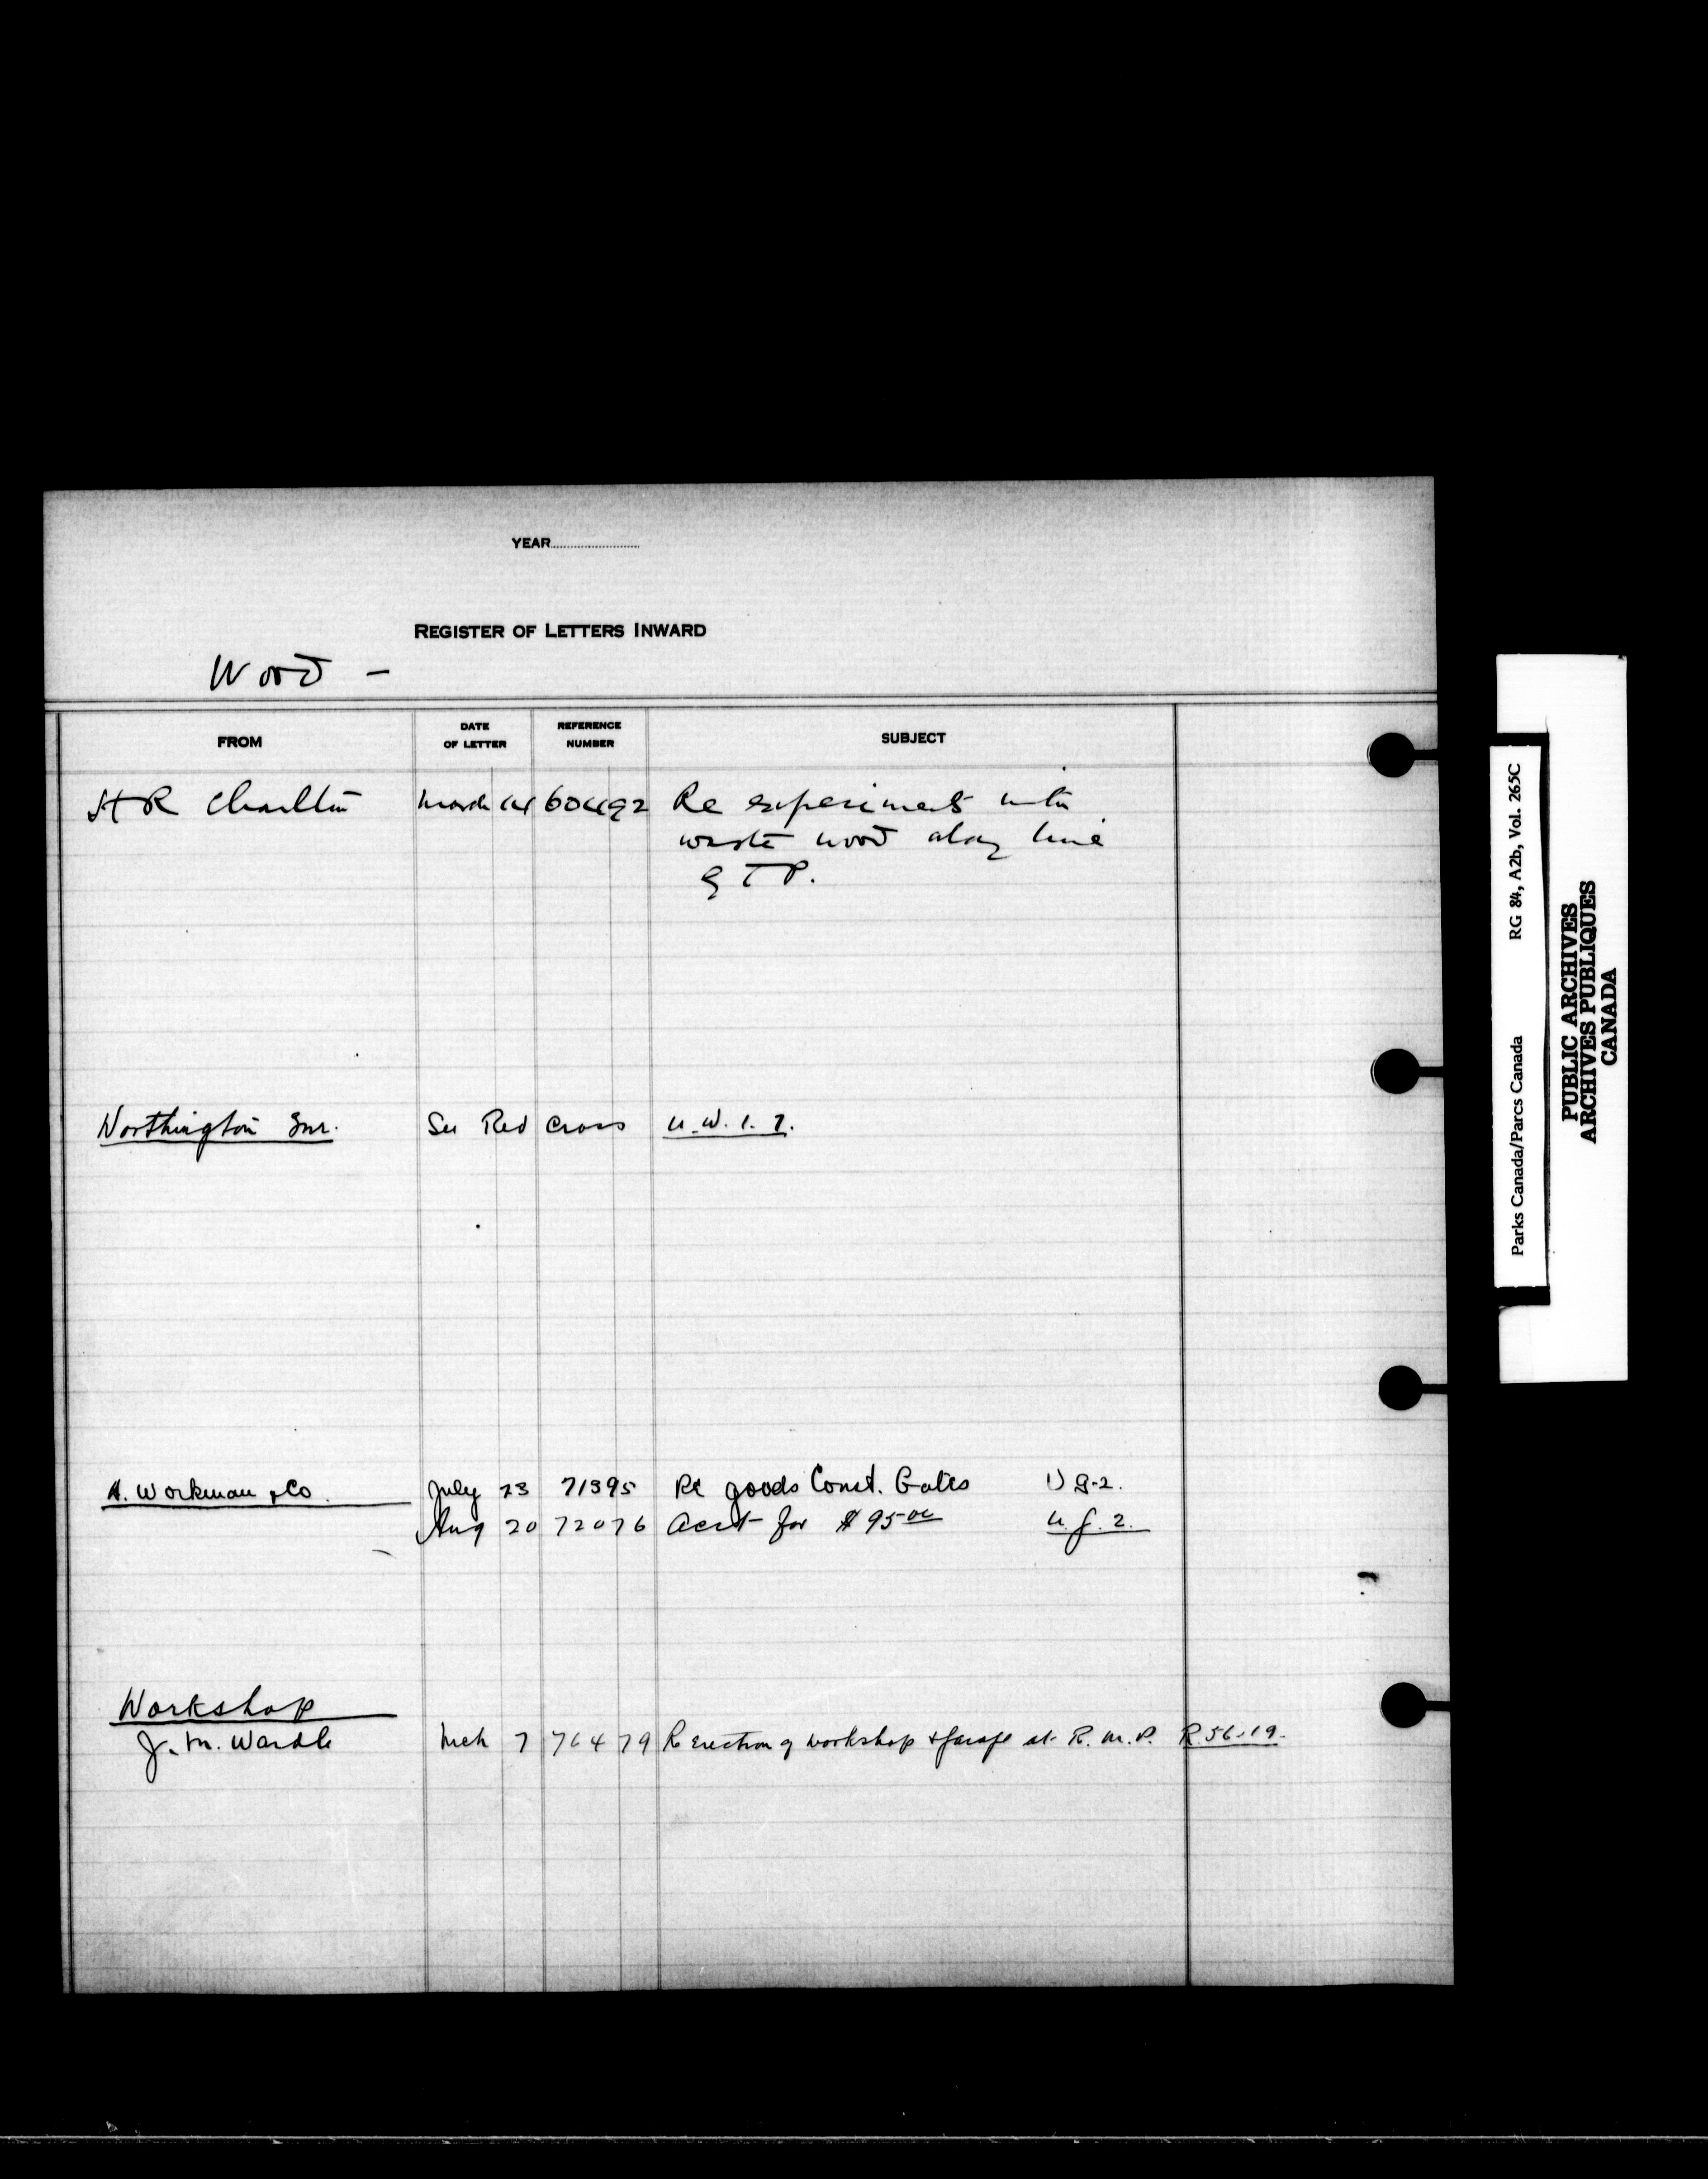 YEAR
REGISTER OF LETTERS INWARD
Wood -
FROM DATE OF LETTER REFERENCE NUMBER SUBJECT
H R Charlton March 14 60492 Re experiments with
waste wood along line
G T P.
Worthington See Red Cross U.W.1.7.
A. Workman & Co. July 23 71395 Re goods Const. Gates U g-2.
Aug 20 72076 Acct for $95 00 U.g.2.
Workshop
J. M. Wardle Mch 7 76479 Re erection of workshop & garage at R.M.P. R.56-19.
Parks Canada/Parcs Canada RG 84, A2b, Vol. 265C
PUBLIC ARCHIVES
ARCHIVES PUBLIQUES
CANADA